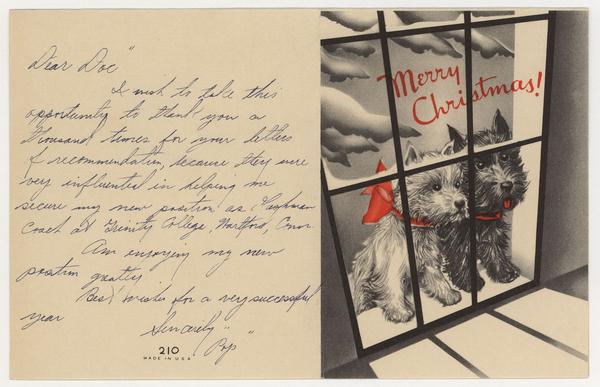 Dear Doc"
I wish to take this
opportunity to thank you a
thousand times for your letters
of recommendation, because they were
very influential in helping me
secure my new position as Freshman
Coach at Trinity College, Hartford, Conn.
Am enjoying my new
position greatly.
Best wishes for a very successful
year
Sincerely"
"Pop"
210
MADE IN U.S.A.
Merry
Christmas!